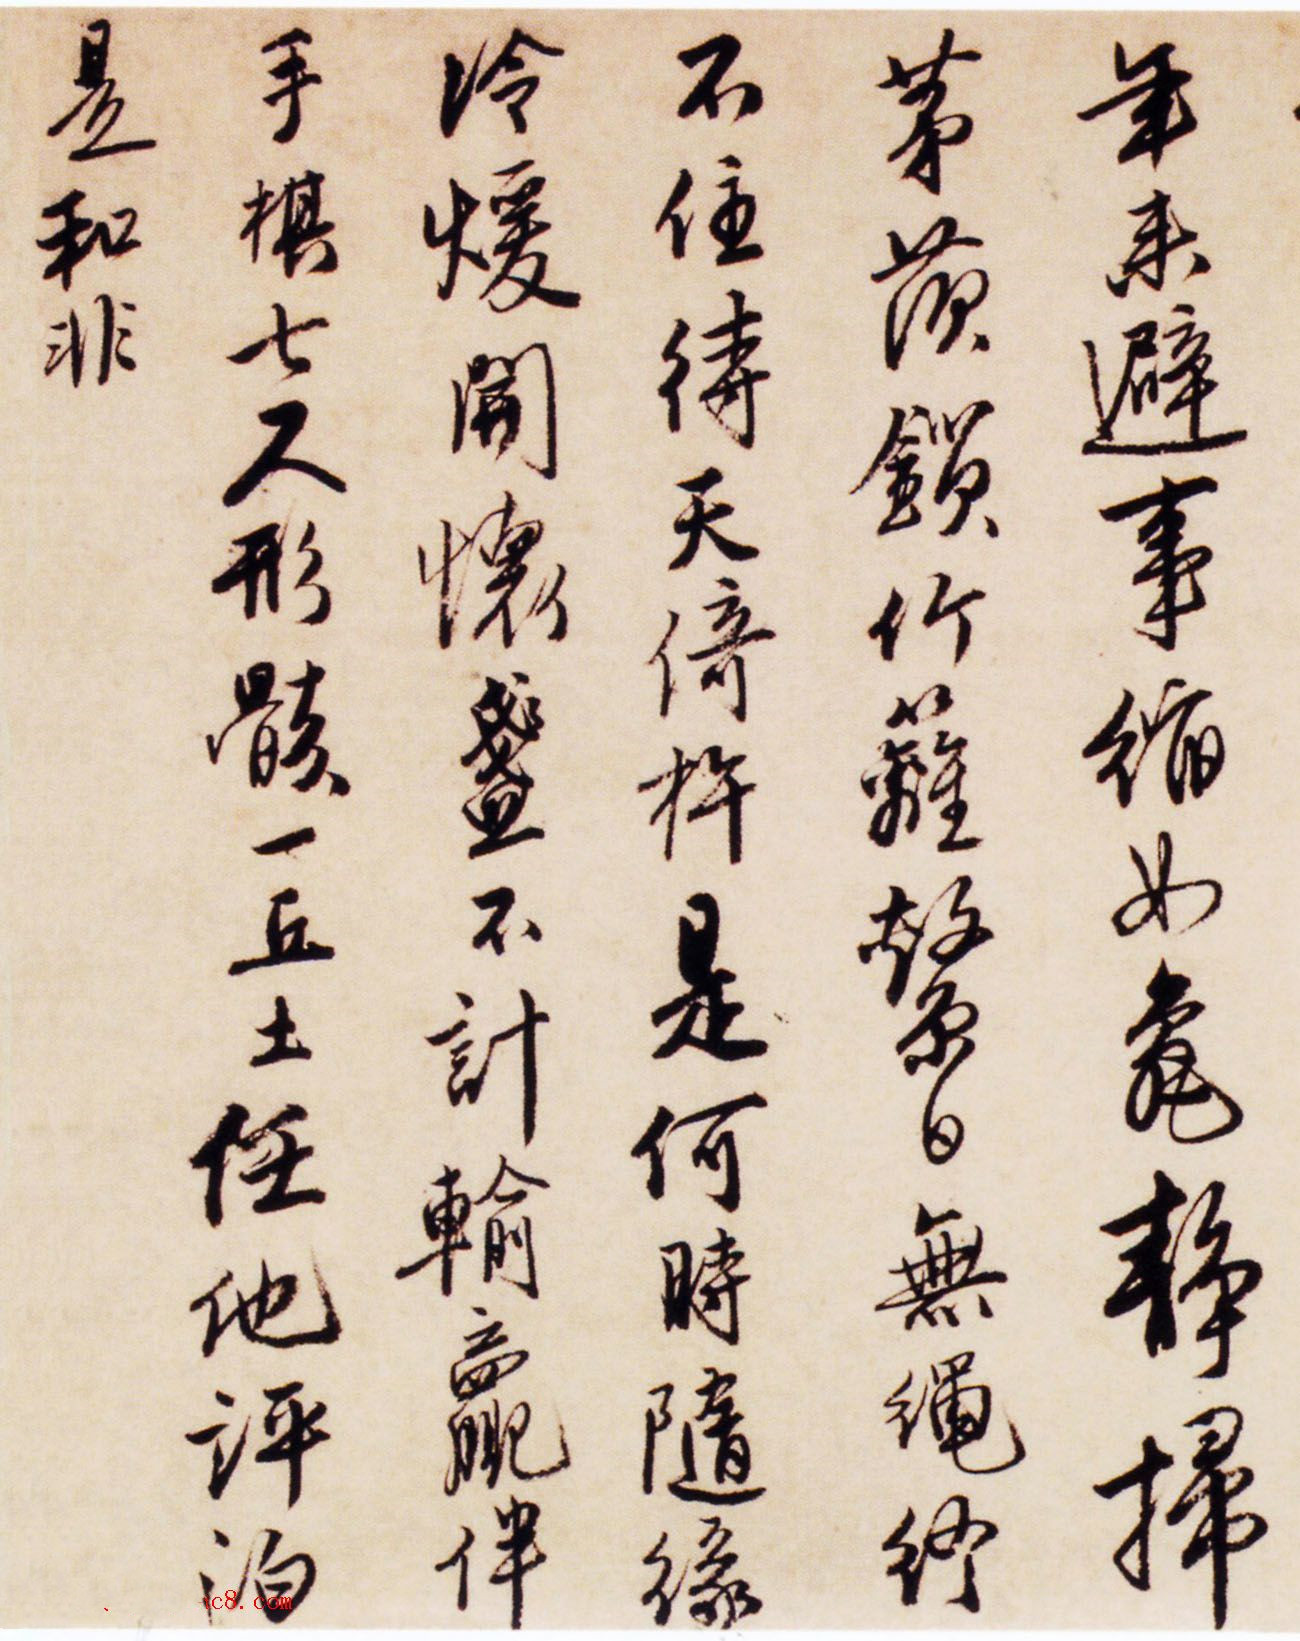 年来避事縮如龜静掃
茅茨鎖竹籬繫日無繩終
不住待天倚杵是何時隨緣
冷煖開懷盞不計輸贏伴
手棋七尺形骸一丘土任他評泊
是和非
c8.com